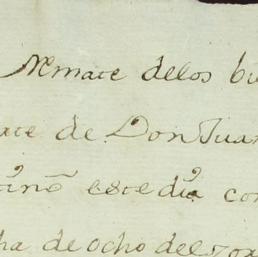 Remate delos bi
ate de Don Juan
este dia con
ha de ocho del